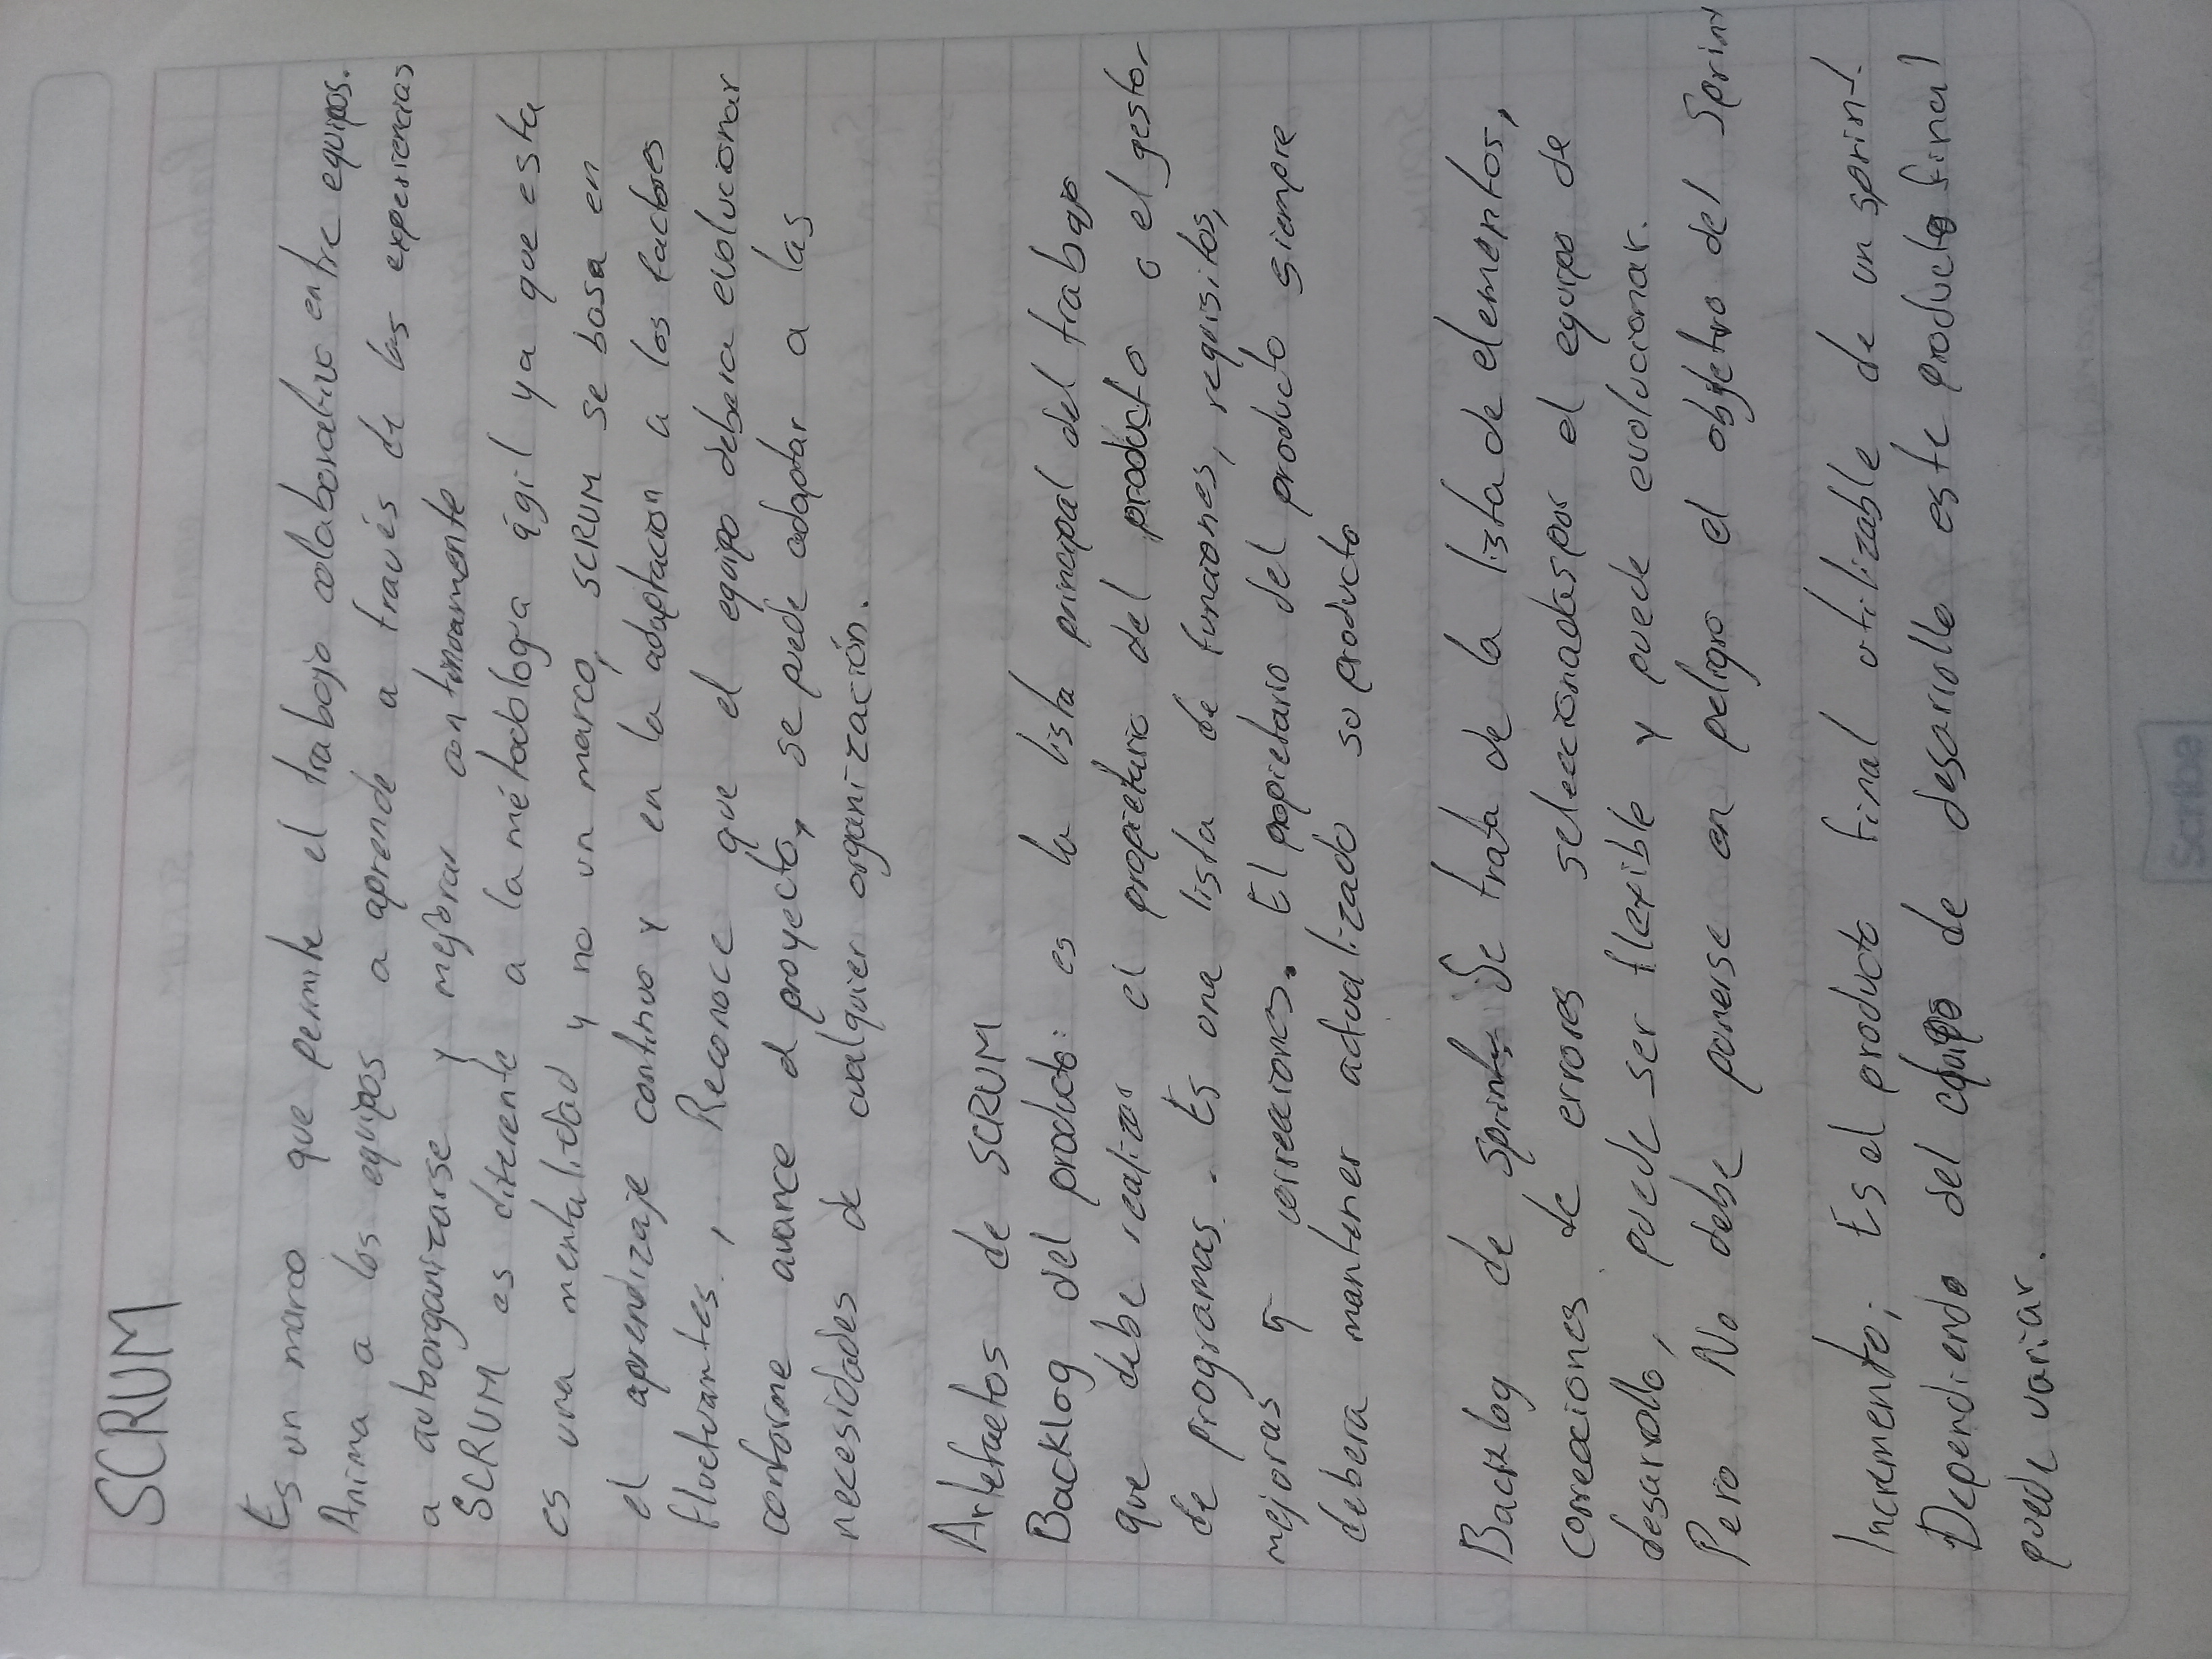 SCRUM
Es un marco que permite el trabajo colaborativo entre equipos.
Anima a los equipos a aprende a través de las experiencias
a autoorganizarse y mejorar continuamente
SCRUM es diferente a la métodología ágil ya que esta
es una mentalidad y no un marco, SCRUM se basa en
el aprendizaje continuo y en la adaptacion a los factores
fluctuantes, Reconoce que el equipo debera evolucionar
conforme avance el proyecto, se puede adaptar a las
necesidades de cualquier organización.
Artefactos de SCRUM
Backlog del producto: es la lista principal del trabajo
que debe realizar el propietario del producto o el gestor
de programas. Es una lista de funciones, requisitos,
mejoras y correcciones. El propietario del producto siempre
debera mantener actualizado su producto
Backlog de sprint: Se trata de la lista de elementos,
correcciones de errores seleccionadas por el equipo de
desarrollo, puede ser flexible y puede evolucionar.
Pero No debe ponerse en peligro el objetivo del Sprint
Incremento: Es el producto final utilizable de un sprint.
Dependiendo del equipo de desarrollo este producto final
puede variar.
Scribe